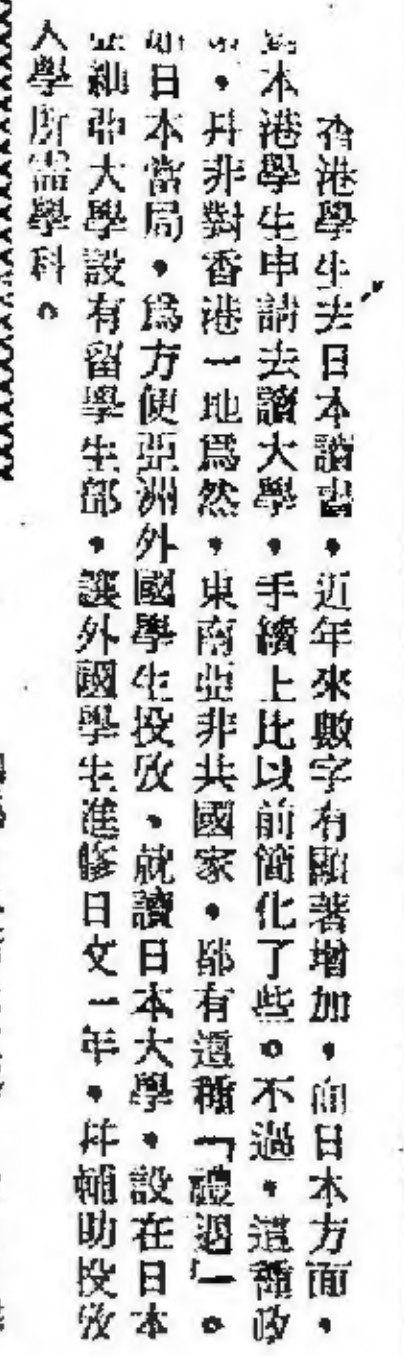 香港學生去日本讀書,近年來數字有顯著增加,而日本方面,
本港學生申請去讀大學,手續上比以前簡化了些。不過,這種政
策,幷非對香港一地爲然,東南亞非共國家,都有這種「禮遇」。
如日本當局,爲方便亞洲外國學生投攷、就讀日本大學,設在日本
亞細亞大學設有留學生部,讓外國學生進修日文一年,幷輔助投攷
入學所需學科。